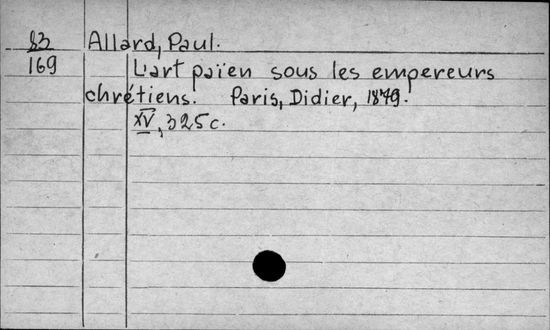 83 Allard, Paul.
169 L'art païen sous les empereurs
chrétiens. Paris, Didier, 1879.
XV, 325 c.